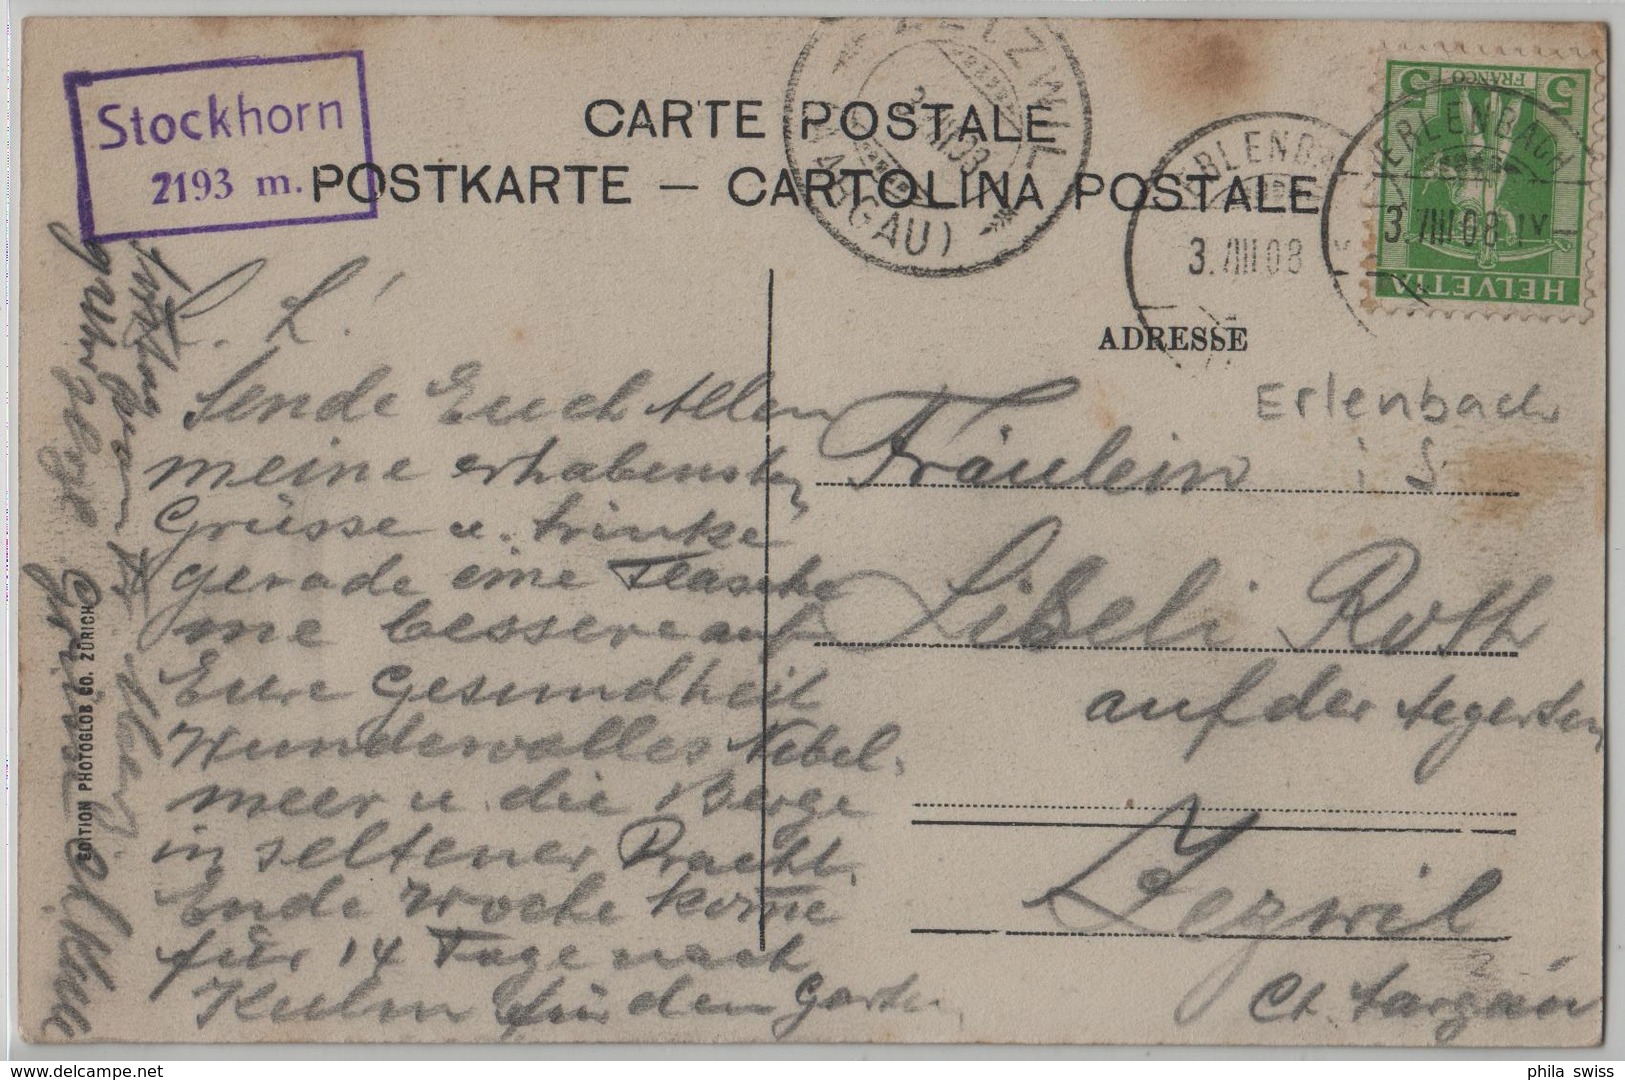 Stockhorn
2193 m.
CARTE POSTALE
POSTKARTE — CARTOLINA POSTALE
(AARGAU)
ERLENBACH
3.VIII.08
ERLENBACH
3.VIII.08 IX
5 FRANCO 5
HELVETIA
ADRESSE
Erlenbach
i S.
L. L.!
Sende Euch Allen
meine erhabensten
Grüsse u. trinke
gerade eine Flasche
me bessere auf
Eure Gesundheit
Wundervolles Nebel-
meer u. die Berge
in seltener Pracht.
Ende Woche kome
für 14 Tage nach
Kulm für den Garten
Grüsse
EDITION PHOTOGLOB CO. ZÜRICH
Fräulein
Liseli Roth
auf der Aegerten
Zezwil
Ct. Aargau
phila swiss